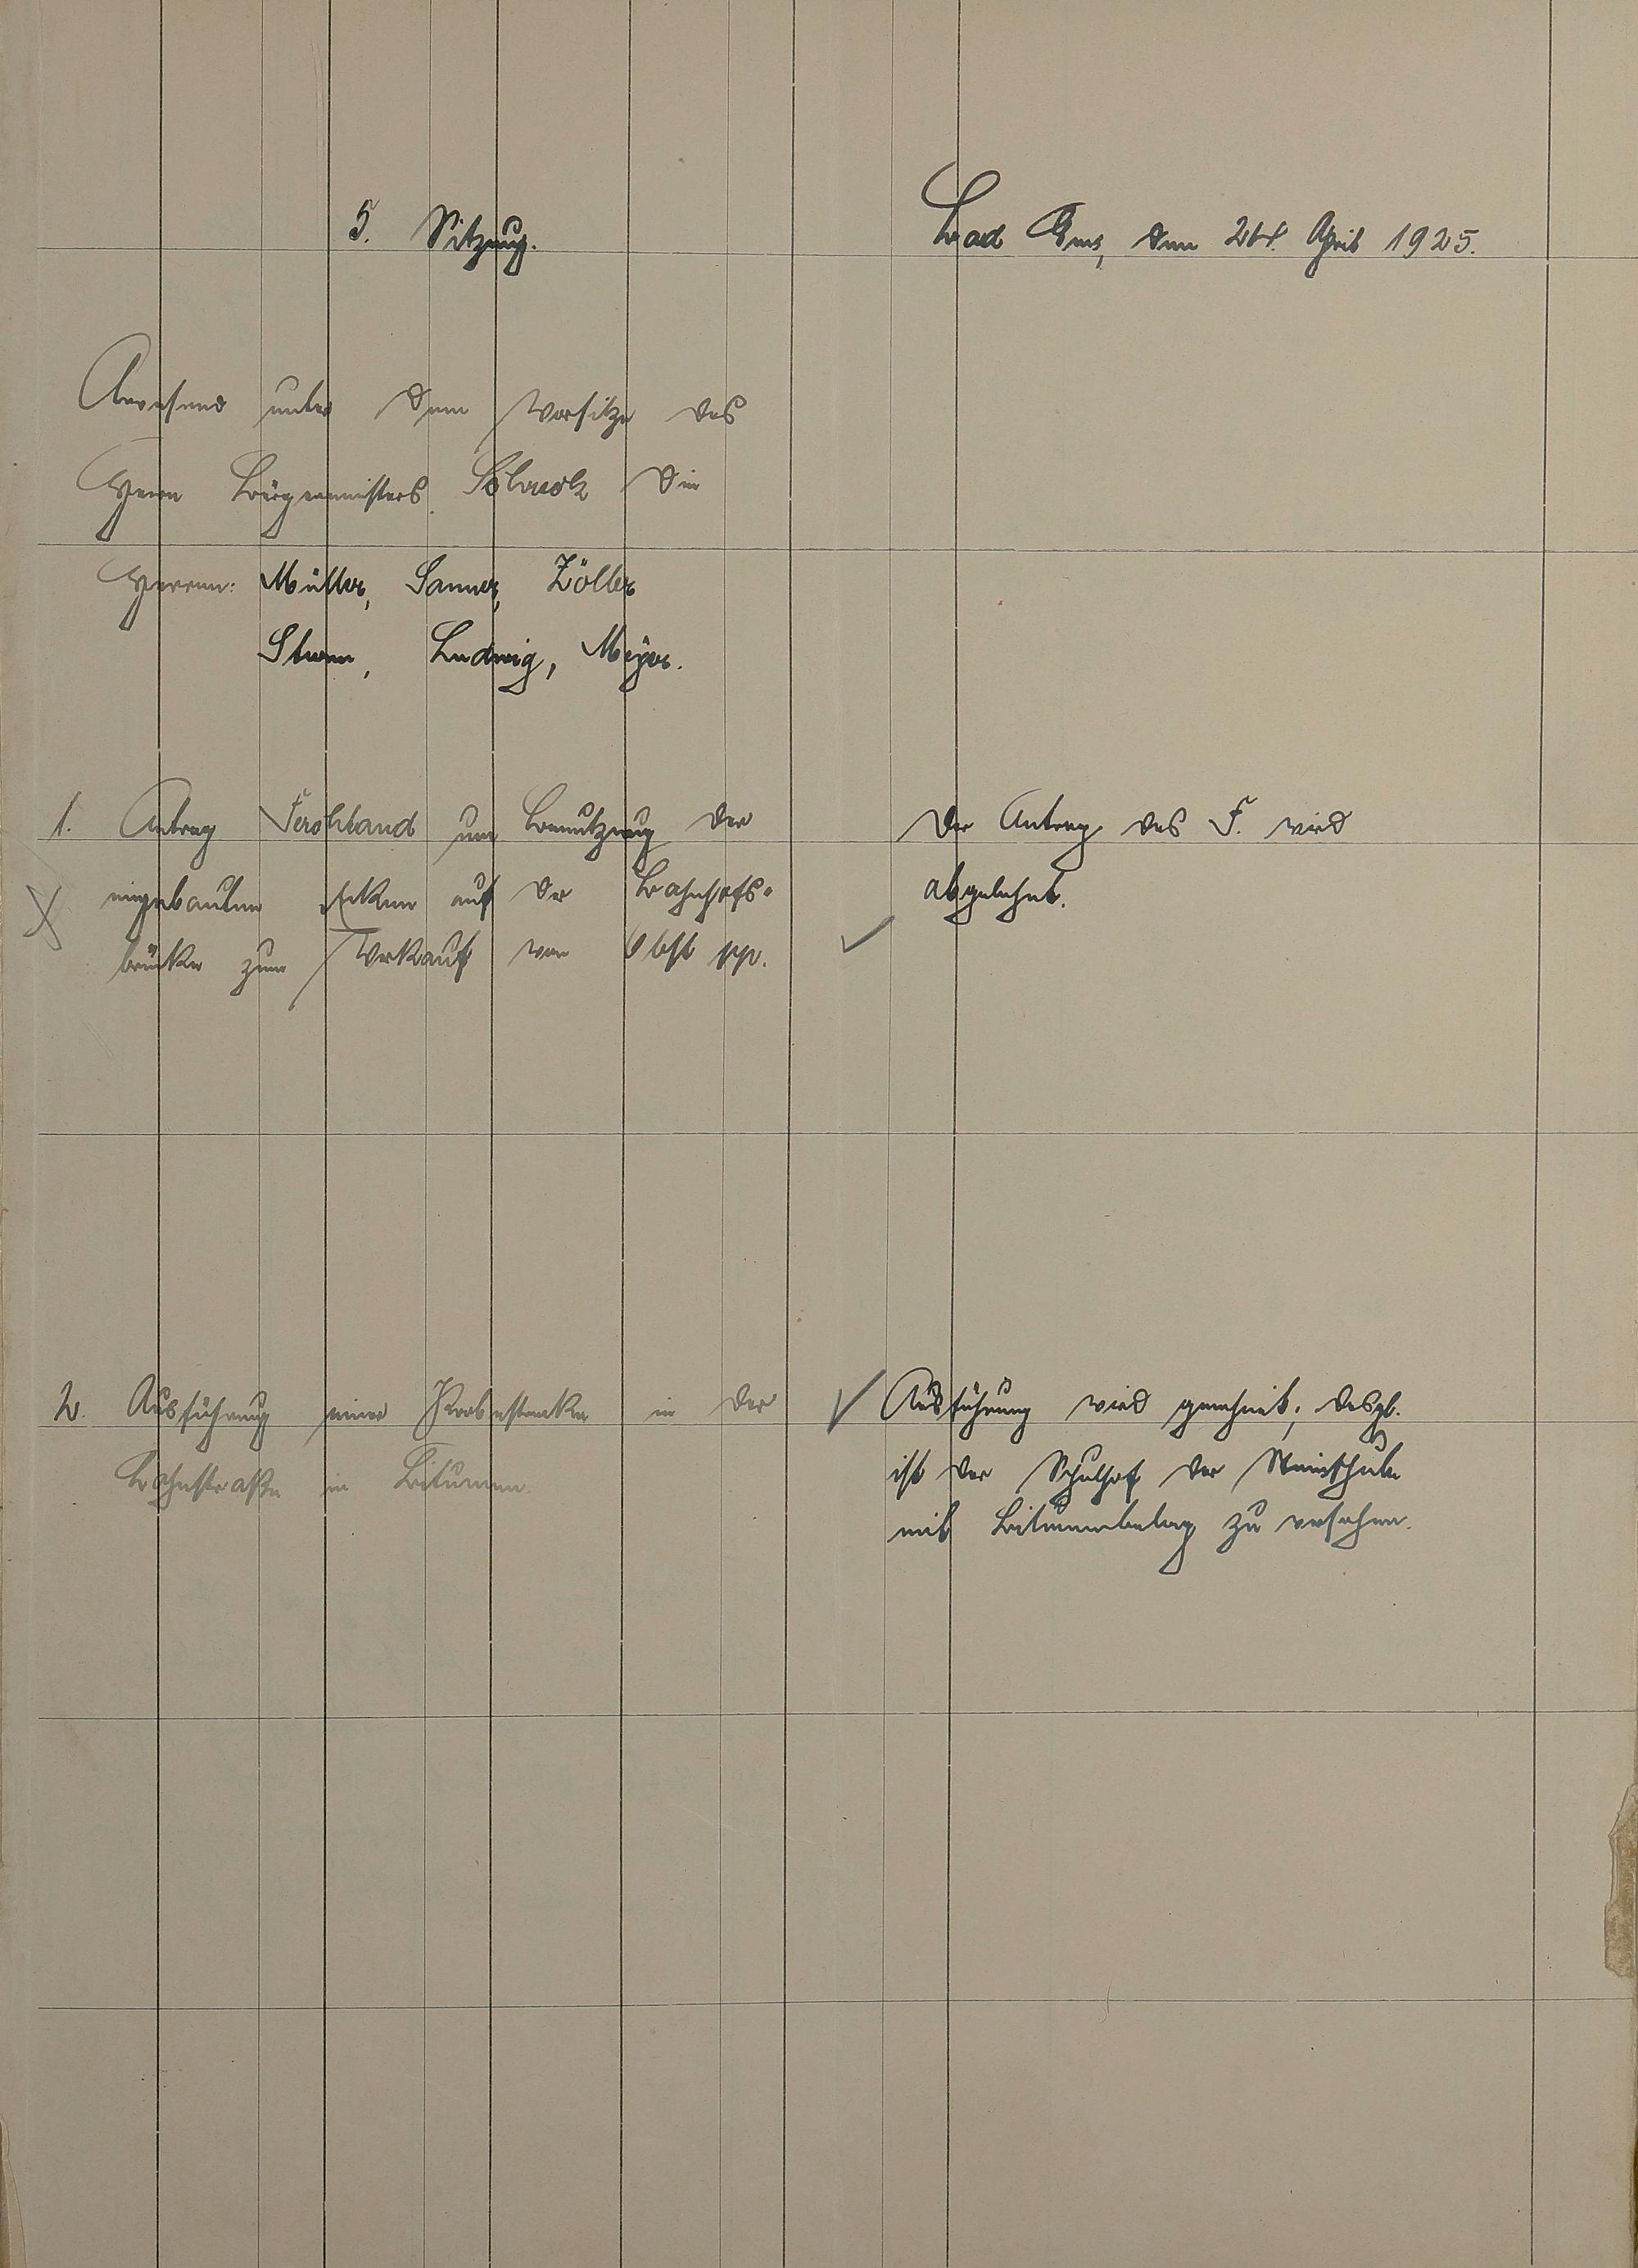 5. Sitzung.
Bad Ems, den 24. April 1925.
Anwesend unter dem Vorsitze des
Herrn Bürgermeisters die
Herren: Müller, Sanner, Zöller
Sturm, Ludwig, Meyer.
1. Antrag Ferchland um Benutzung der
eingebauten Erker auf der Bahnhofs-
brücke zum Verkauf von Obst pp.
Der Antrag des F. wird
abgelehnt.
2. Ausführung einer Probestrecke in der
Bahnstraße in Bitumen.
Ausführung wird genehmt; desgl.
ist der Schulhof der Steinschule
mit Bitumenbelag zu versehen.